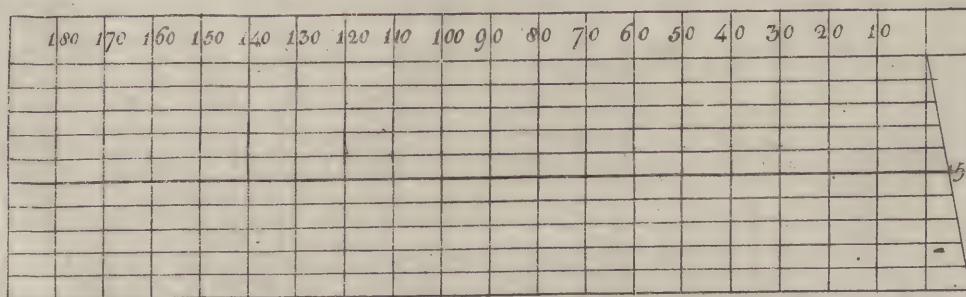 180 170 160 150 140 130 120 110 100 90 80 70 60 50 40 30 20 10
5